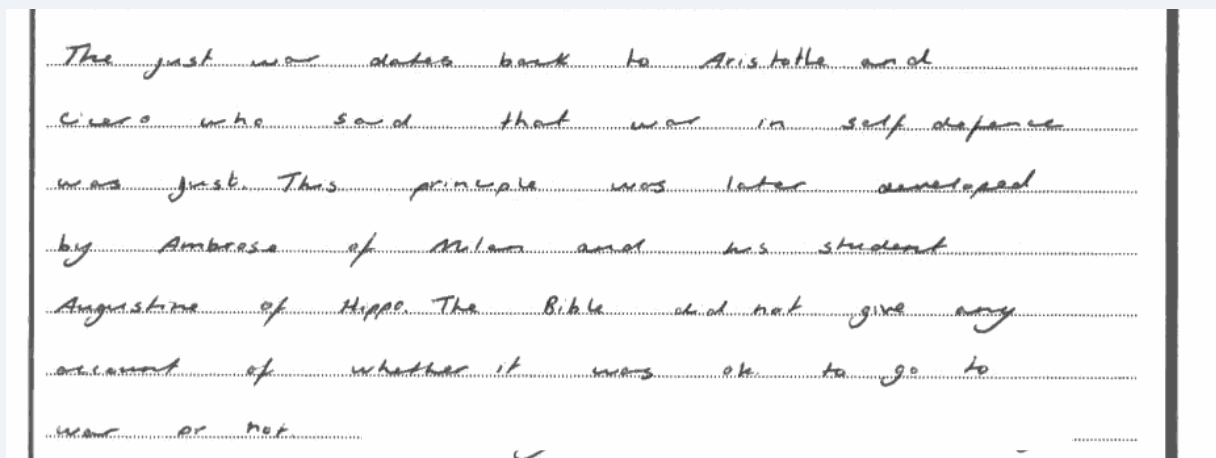 The just war dates back to Aristotle and
Cicero who said that war in self defence
was just. This principle was later developed
by Ambrose of Milan and his student
Augustine of Hippo. The Bible did not give any
account of whether it was ok to go to
war or not.